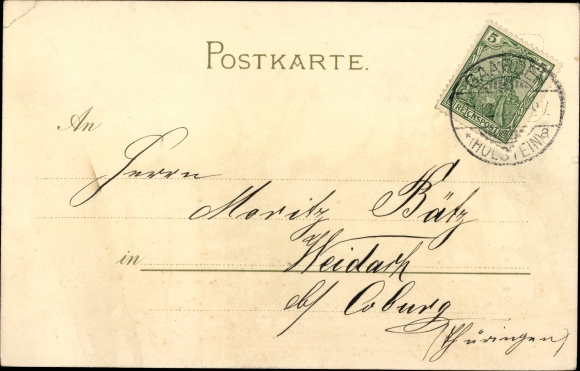 POSTKARTE.
5
REICHSPOST
GAARDEN
*(HOLSTEIN)
An
Herrn
Moritz Bätz
in Weidach
b/ Coburg
(Thüringen)